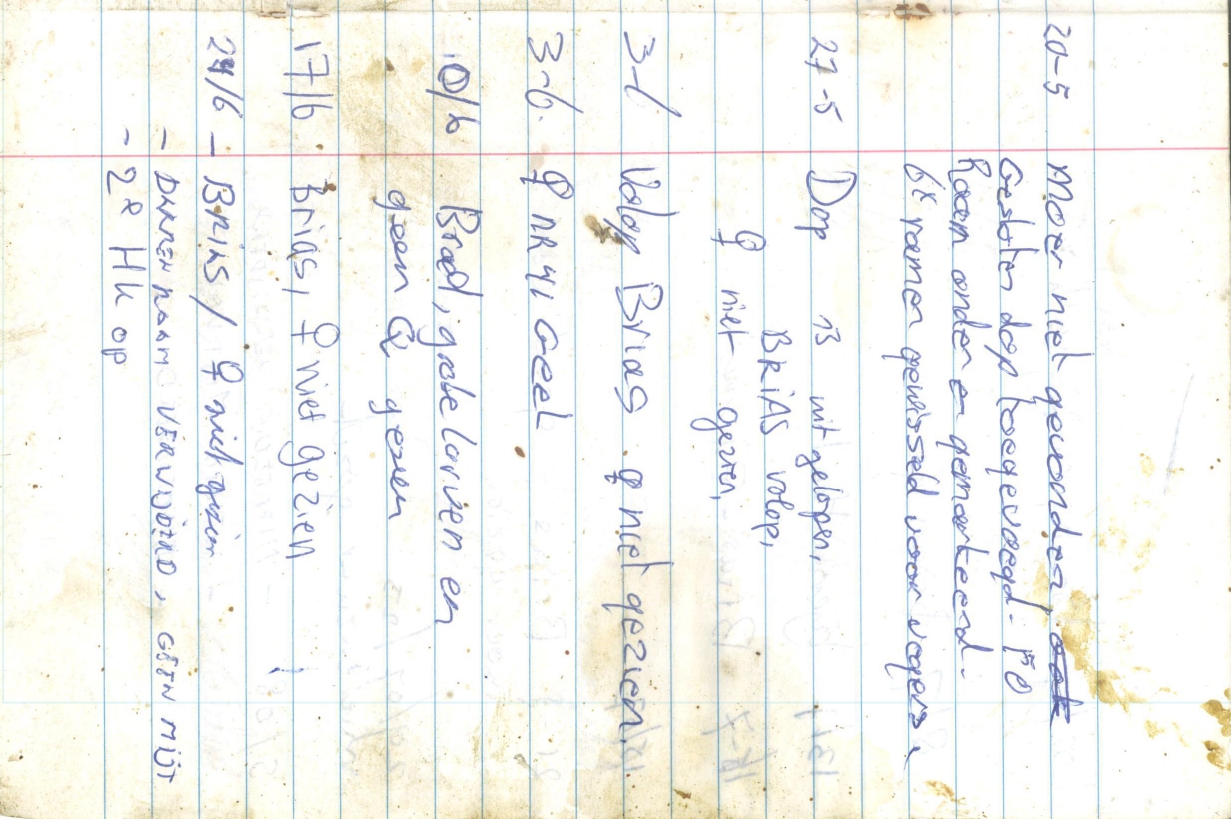 20-5 Moer niet gevonden,
Gesloten dop toegevoegd-
Raam onder en gemarkeerd-
6x ramen gewisseld voor wagens
27-5 Dop is uitgelopen,
BRiAS volop,
♀ niet gezien,
3-6 Volop Brias ♀ niet gezien,
3-6. ♀ NR 41 Geel
10/6 Broed, grote larven en
geen ♀ gezien
17/6 Brias, ♀ niet gezien
24/6 - BRiAS / ♀ niet gezien
- DARREN RAAM VERWIJDERD, GEEN MIJT
- 2e HK op